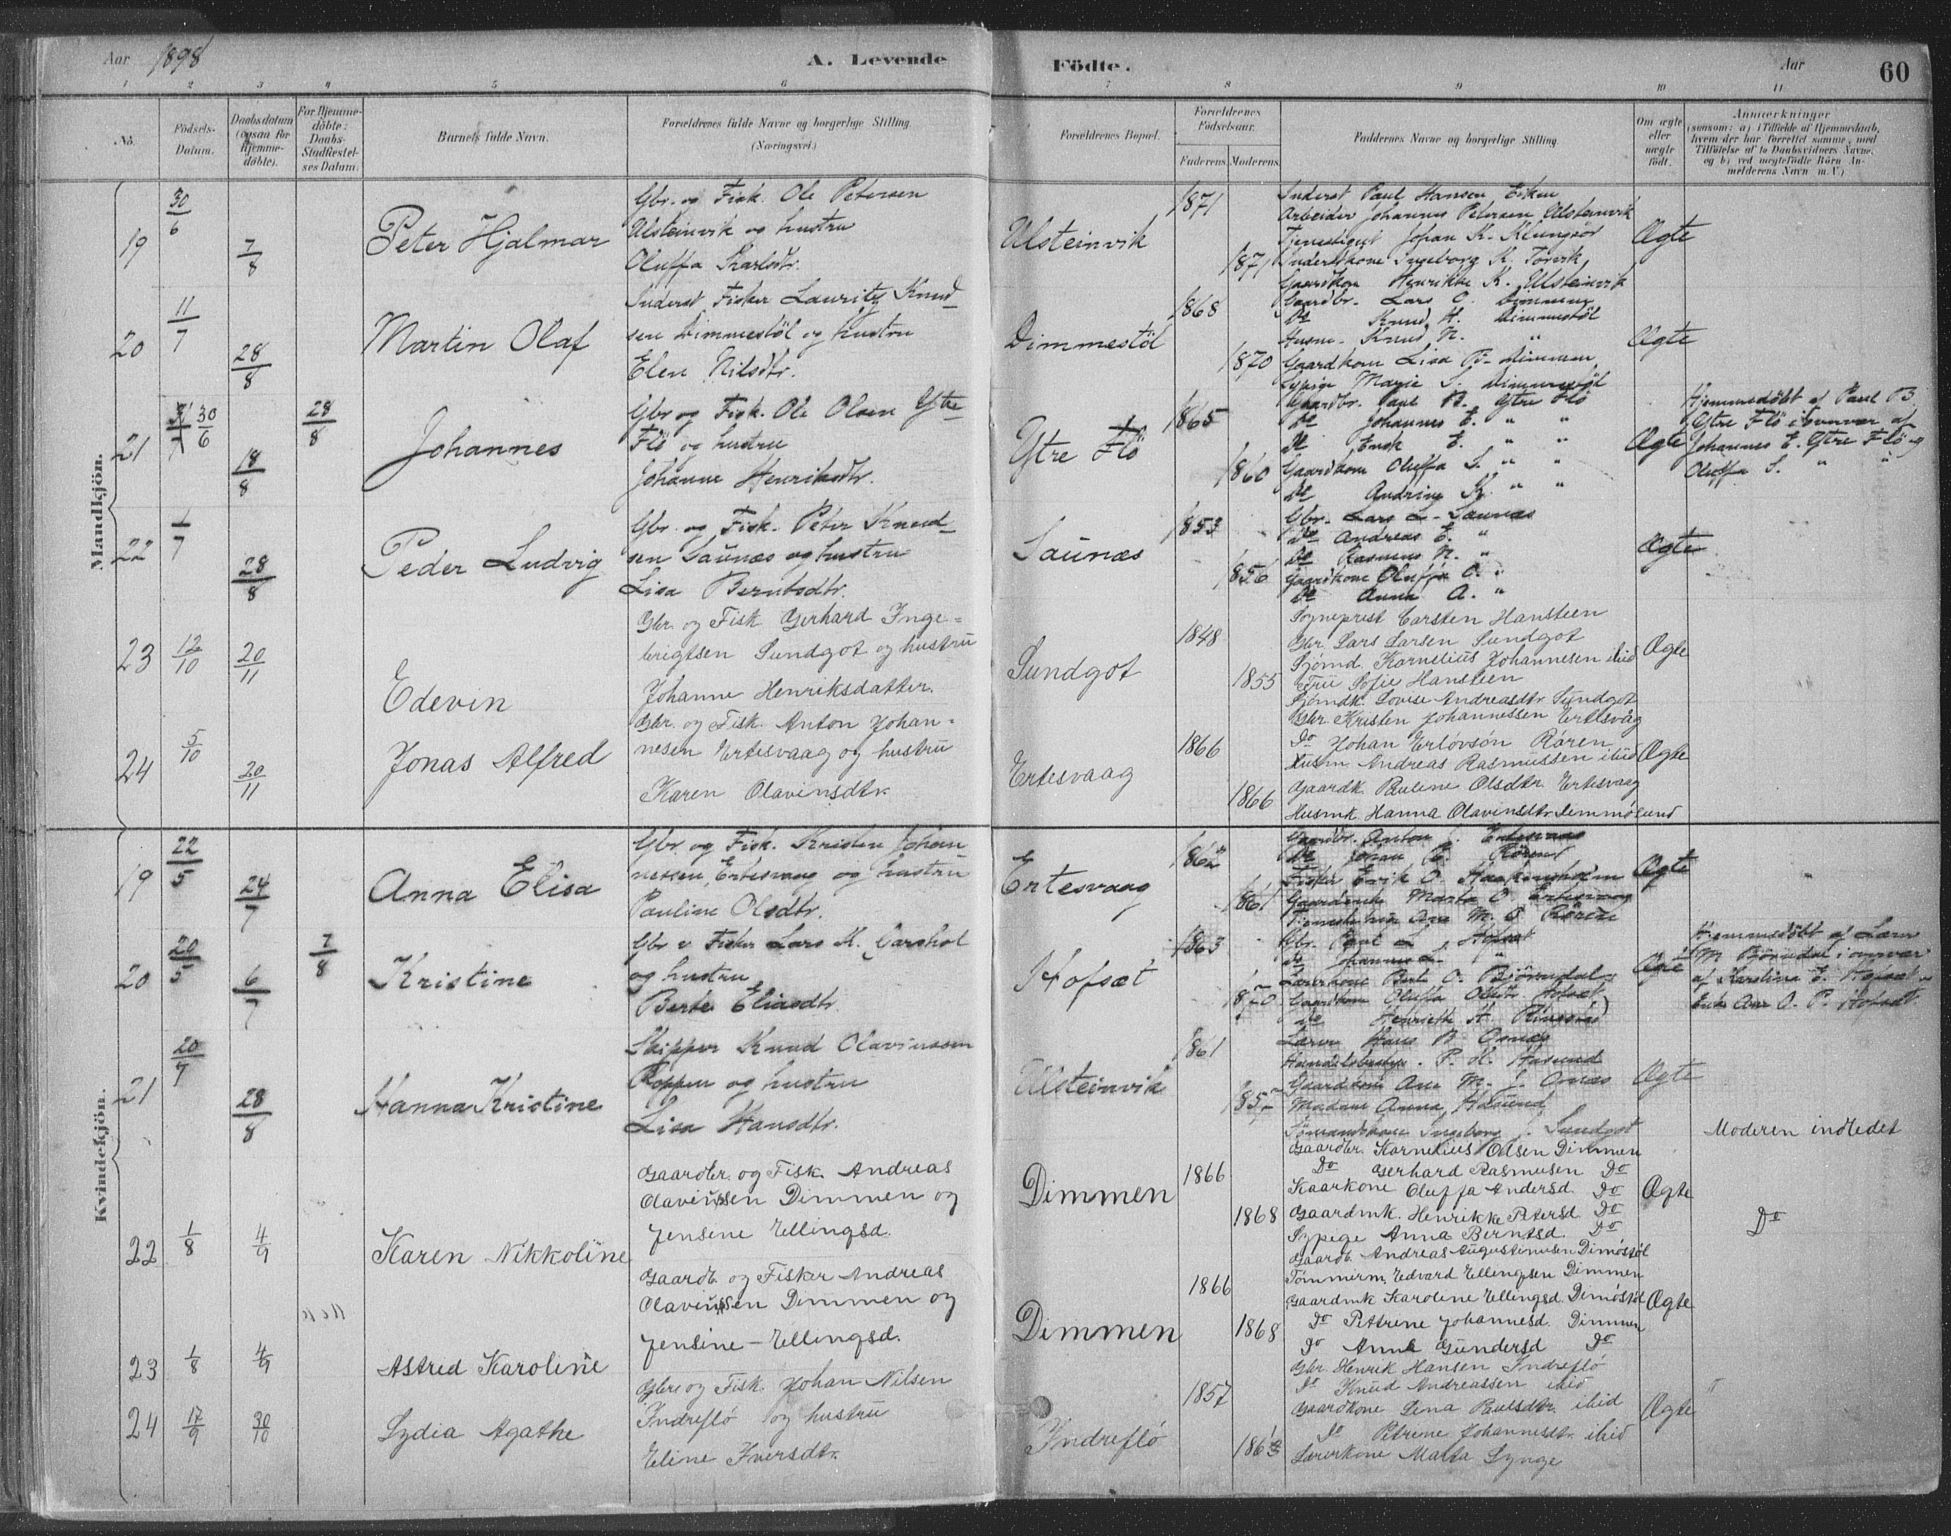 Aar 1898 A. Levende Födte. Aar 60
1 2 3 4 5 6 7 8 9 10 11
No.
Födsels-Datum.
Daabsdatum (ogsaa for Hjemmedöbte).
For Hjemmedöbte: Daabs-Stadfestelses Datum.
Barnets fulde Navn.
Forældrenes fulde Navne og borgerlige Stilling (Næringsvei.)
Forældrenes Bopæl.
Forældrenes Födselsaar.
Faderens. Moderens.
Faddernes Navne og borgerlige Stilling
Om ægte eller uægte födt.
Anmærkninger
(saasom: a) i Tilfælde af Hjemmedaab,
hvem der har forrettet samme, med
Tilföielse af to Daabsvidners Navne,
og b) ved uægtefödte Börn Anmelderens Navn m. V.)
Mandkjön.
19 30/6 7/8 Peter Hjalmar
Gbr. og Fisk. Ole Petersen
Ulsteinvik og hustru
Oluffa Karlsdtr.
Ulsteinvik 1871 1871
Inderst Paul Hansen Eiken
Arbeider Johannes Petersen Ulsteinvik
Tjenestegut Johan K. Klungsör
Inderstkone Ingeborg K. Torvik
Gaardkon Henrikke K. Ulsteinvik
Ægte
20 11/7 28/8 Martin Olaf
Inderst Fisker Lauritz Knud-
sen Dimmestöl og hustru
Elen Nilsdtr.
Dimmestöl 1868 1870
Gaardbr. Lars O. Dimmen
Do Knud H. Dimmestöl
Husm. Knud N. "
Gaardkone Lisa P. Dimmen
Sypige Marie S. Dimmestöl
Ægte
21 30/6 18/8 28/8 Johannes
Gbr og Fisk. Ole Olsen Ytre
Flö og hustru
Johanne Henriksdtr.
Ytre Flö 1865 1860
Gaardbr. Paul B. Ytre Flö
Do Johannes E. " "
Do E. " "
Gaardkone Oluffa S. " "
Do Andrine K. " "
Ægte
Hjemmedöbt af Paul B.
Ytre Flö i övervær af
Johannes E. Ytre Flö og
Oluffa S. " "
22 1/7 28/8 Peder Ludvig
Gbr. og Fisk. Peter Knud-
sen Saunæs og hustru
Lisa Berntsdtr.
Saunæs 1853 1856
Gbr. Lars L. Saunæs
Do Andreas E. "
Do Rasmus N. "
Gaardkone Oluffa O. "
Do Anna A. "
Ægte
23 12/10 20/11 Edevin
Gbr. og Fisk Gerhard Inge-
brigtsen Sundgot og hustru
Johanne Henriksdatter.
Sundgot 1848 1855
Sogneprest Carsten Hansteen
Gbr. Lars Larsen Sundgot
Sjömd. Kornelius Johannesen ibid
Frü Sofie Hansteen
Sjömdk. Lovise Andreasdtr. Sundgot
Ægte
24 5/10 20/11 Jonas Alfred
Gbr. og Fisk. Anton Johan-
nesen Ertesvaag og hustru
Karen Olavinsdtr.
Ertesvaag 1866 1866
Gbr. Kristen Johannessen Ertesvåg
Do Johan Erlovsön Rören
Husm. Andreas Rasmussen ibid
Gaardk. Pauline Olsdtr. Ertesvaag
Husmk. Hanna Olavinsdtr.
Ægte
Kvindekjön.
19 22/5 24/7 Anna Elisa
Gbr. og Fisk. Kristen Johan-
nessen Ertesvaag og hustru
Pauline Olsdtr.
Ertesvaag 1862 1861
Gaardbr. Anton J. Ertesvaag
Do Johan E. Rörend
Fisker Erik O. Haakonsholm
Marta O. Ertesvaag
Ane M. Rören
Ægte
20 20/5 6/7 7/8 Kristine
Gbr. o Fisker Lars K. Garshol
og hustru
Berte Eliasdtr.
Hofsæt 1863 1870
Gbr. Paul L. Hofsæt
Do Johannes L. "
Lærerkone Berte O. Björndal
Gaardkone Oluffa Olsdtr Hofsæt
Do Henriette A.
Ægte
Hjemmedöbt af Lærer
M. Björndal i övervær
af Karoline E. Hofsæt
Enke Ane O. P. Hofsæt
21 20/7 28/8 Hanna Kristine
Skipper Knud Olavinssen
Koppen og hustru
Lisa Hansdtr.
Ulsteinvik 1861 1852
Lærer Hans B. Osnæs
P. H. Hasund
Gaardkone Ane M. J. Osnæs
Madam Anna Hasund
Sömandskone Ingeborg J. Sundgot
Ægte
Moderen indledet
22 1/8 4/9 Karen Nikkoline
Gaardbr. og Fisk. Andreas
Olavinssen Dimmen og
Jensine Ellingsd.
Dimmen 1866 1868
Gaardbr. Kornelius Olsen Dimmen
Do Gerhard Rasmusen Do
Kaarkone Oluffa Andersd. Do
Gaardmk. Henrikke Petersd. Do
Sypige Anna Berntsd. Do
Ægte
Do
23 1/8 4/9 Astred Karoline
Gaardb. og Fisker Andreas
Olavinssen Dimmen og
Jensine Ellingsd.
Dimmen 1866 1868
Gaardb. Andreas Augustinusen Dimöstöl
Tömmerm. Edvard Ellingsen Dimmen
Gaardmk Karoline Ellingsd. Dimöstöl
Do Petrine Johannesd. Dimmen
Do Anne Gundersd Do
Ægte
24 17/9 30/10 Lydia Agathe
Gbr. og Fisk. Johan Nilsen
Indreflö og hustru
Eline Iversdtr.
Indreflö 1857 1863
Gbr. Henrik Hansen Indreflö
Do Knud Andreassen ibid
Gaardkone Lena Paulsdtr. ibid
Do Petrine Johannesdtr. ibid
Lærerkone Malta Synge
Ægte
"